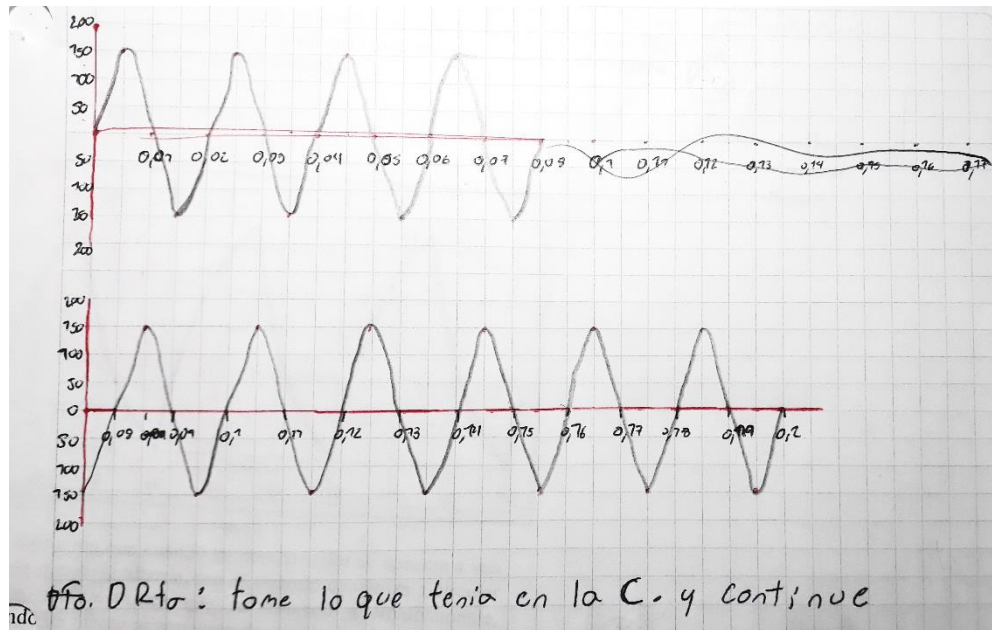 200
150
100
50
0,01 0,02 0,03 0,04 0,05 0,06 0,07 0,09 0,1 0,11 0,12 0,13 0,14 0,15 0,16 0,17
50
100
150
200
200
150
100
50
0
0,09 0,09 0,1 0,11 0,12 0,13 0,14 0,15 0,16 0,17 0,18 0,2
50
100
150
200
DRto: tome lo que tenia en la C. y continue